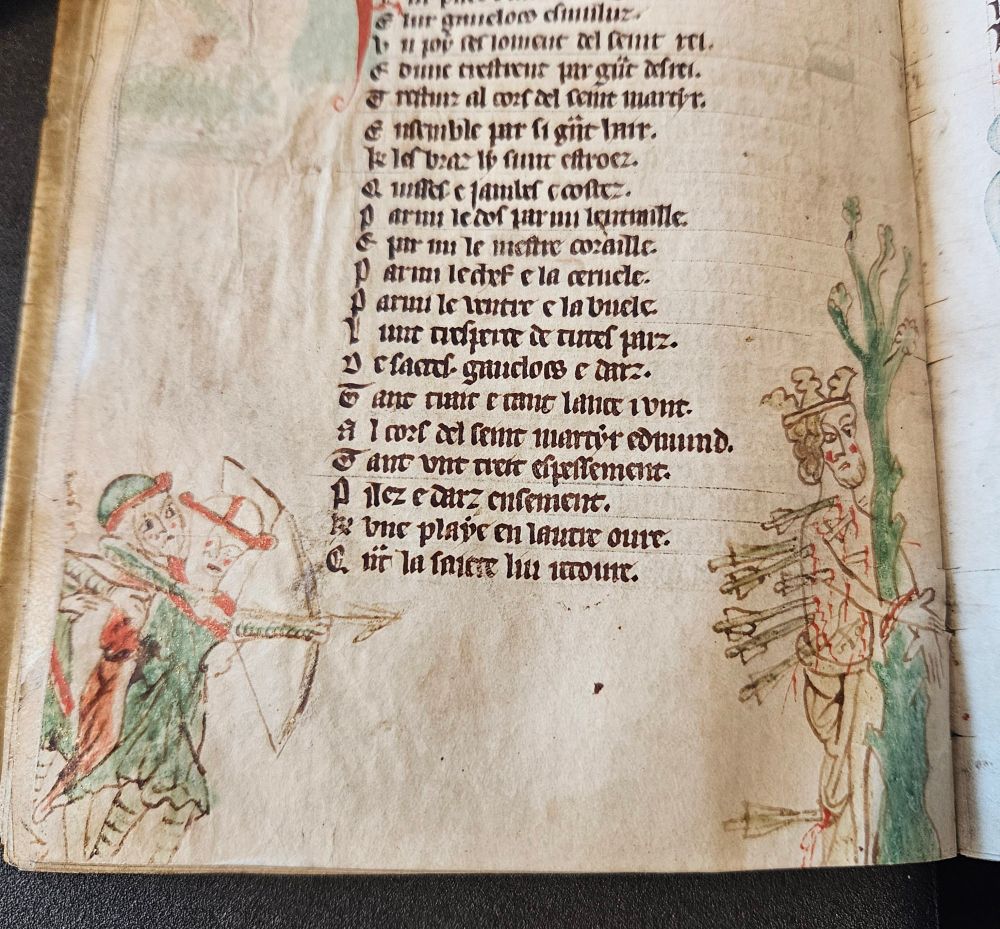 E lur gauelocs esmuluz.
del seint rei.
E dunc treistrent par grāt desrei.
T restuz al cors del seint martẏr.
E nsemble par si grāt hair.
K les braz lẏ sunt estroez.
Q uisses e jambes e costez.
P armi le dos par mi lentraille.
E par mi le mestre coraille.
P armi le chef e la ceruele.
P armi le uentre e la buele.
L unt tresperce de tutes parz.
D e saetes. gauelocs e darz.
T ant trait e tant lance i unt.
A l cors del seint martẏr edmund.
T ant unt treit espessement.
P ilez e darz ensement.
K vne plaẏe en lautre oure.
la saiete lui